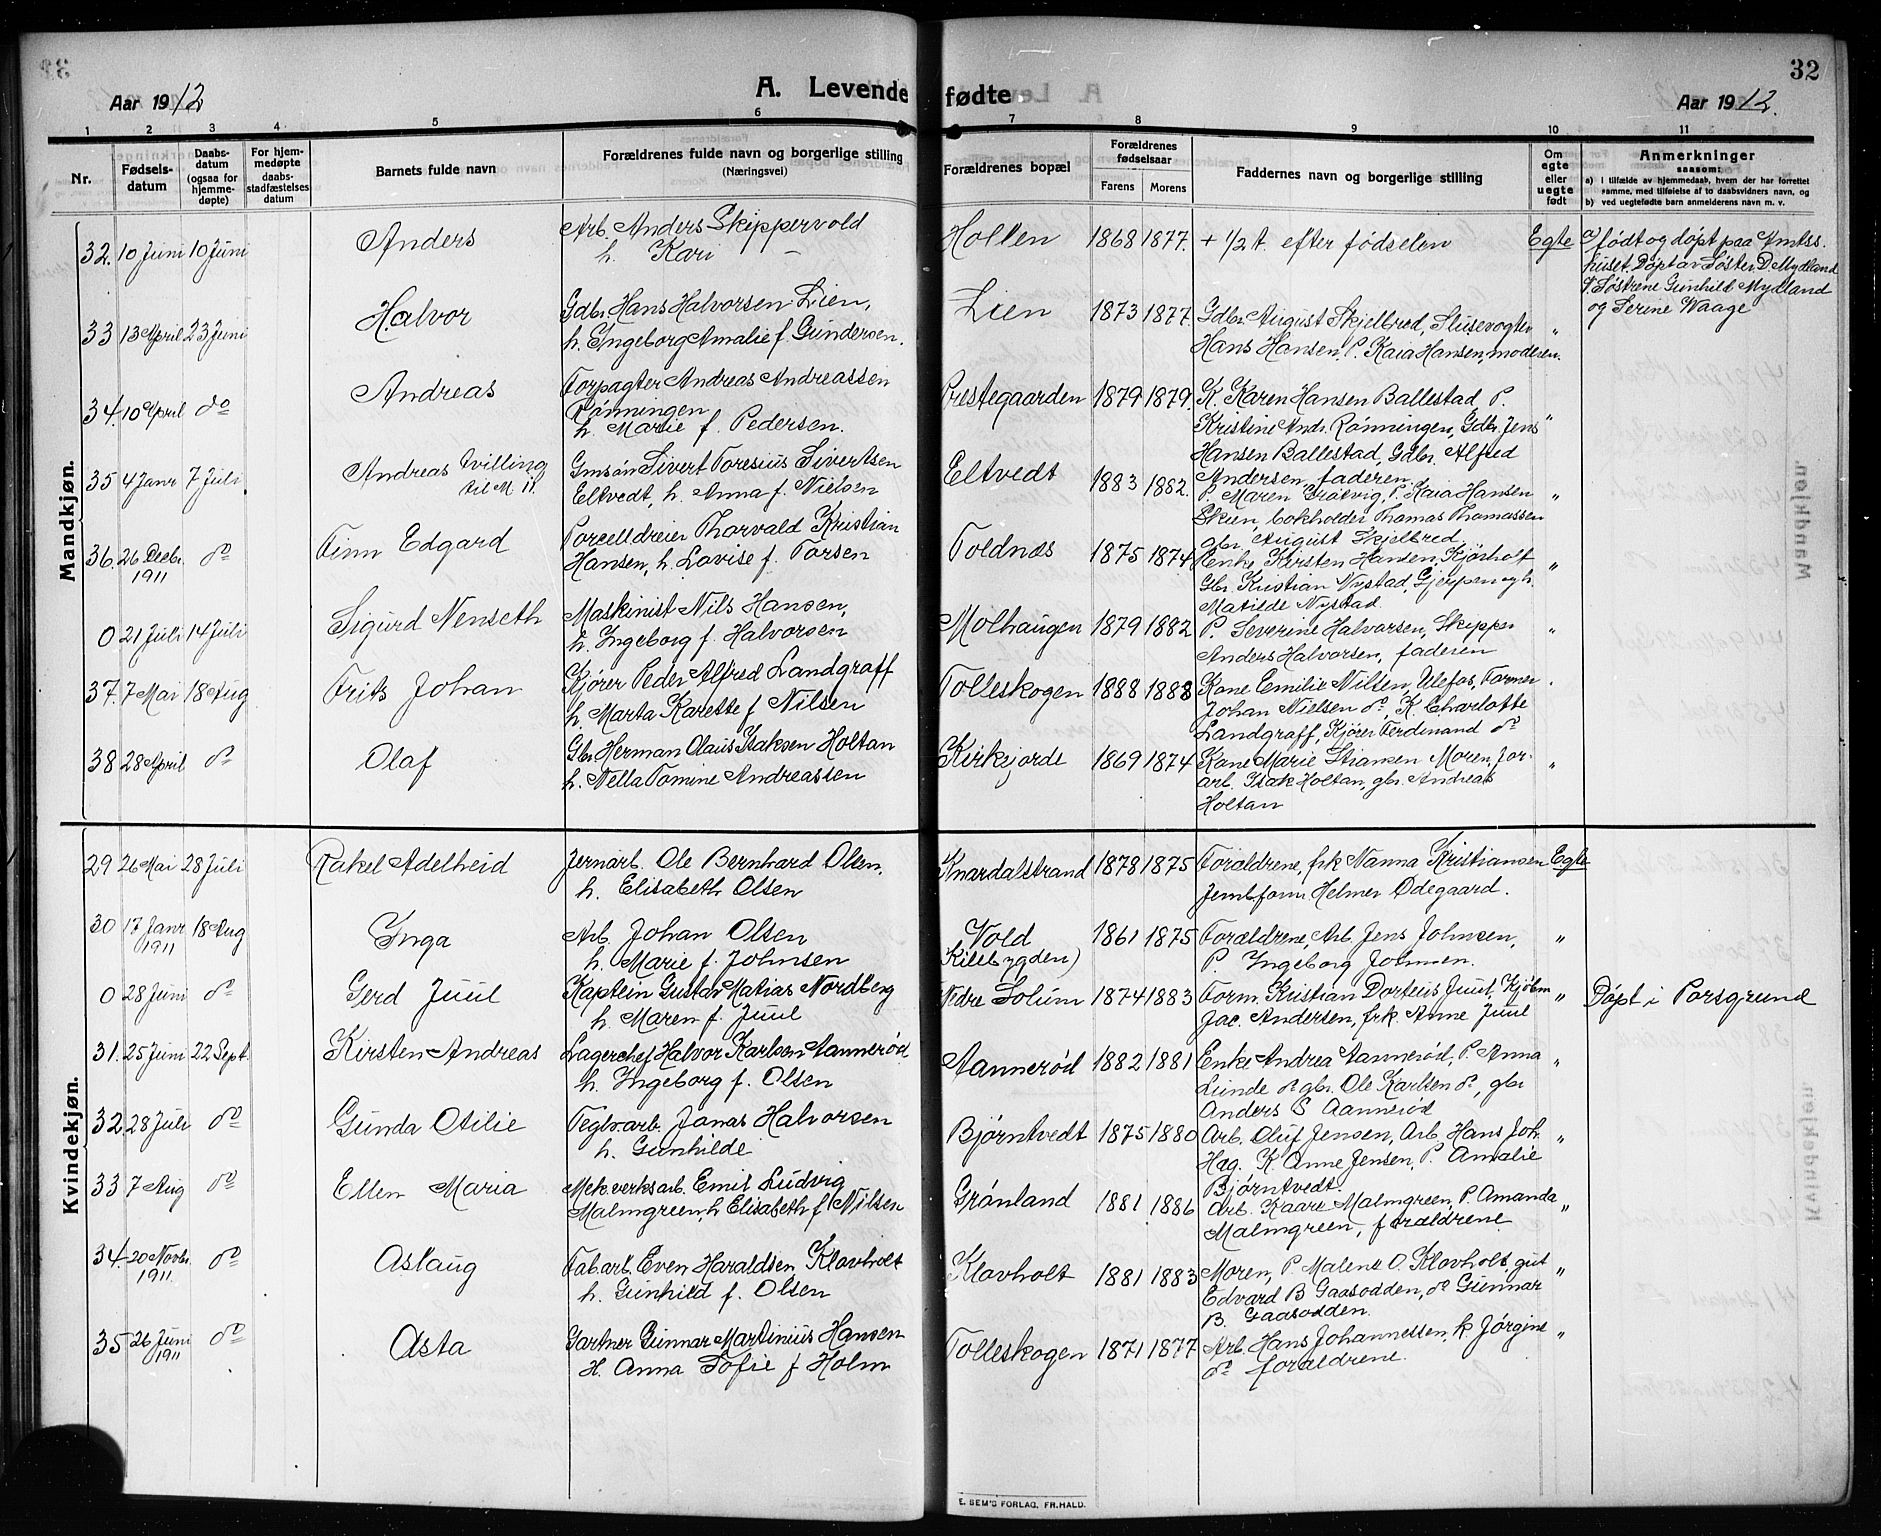 32
Aar 1912
A. Levende fødte
Aar 1912.
1 2 3 4 5 6 7 8 9 10 11
Nr.
Fødsels-
datum
Daabs-
datum
(ogsaa for
hjemme-
døpte)
For hjem-
medøpte
daabs-
stadfæstelses
datum
Barnets fulde navn
Forældrenes fulde navn og borgerlige stilling
(Næringsvei)
Forældrenes bopæl
Forældrenes
fødselsaar
Farens Morens
Faddernes navn og borgerlige stilling
Om
egte
eller
uegte
født
Anmerkninger
saasom:
a) i tilfælde av hjemmedaab, hvem der har forrettet
samme, med tilføielse af to daabsvidners navn, og
b) ved uegtefødte barn anmelderens navn m. v.
Mandkjøn.
32. 10 Juni 10 Juni Anders
Arb. Anders Skippervold
h. Kari —
Hollen 1868 1877. + 1/2 t. efter fødselen Egte
a) født og døpt paa Amtss.
huset. Døpt av Søster D. Mydland
V. Søstrene Gunhild Mydland
og Serine Waage
33 13 April 23 Juni Halvor
Gdbr. Hans Halvorsen Lien,
h. Ingeborg Amalie f. Gundersen.
Lien 1873 1877. Gdbr. August Skjelbred, Slusevogter "
Hans Hansen, P. Kaia Hansen, moderen.
34. 10 April do Andreas
Forpagter Andreas Andreassen
Rønningen
h. Marie f. Pedersen.
Prestegaarden 1879 1879. K. Karen Hansen Ballestad P.
Kristine Andr. Rønningen, Gdbr. Jens "
Hansen Ballestad, Gdbr. Alfred
Andersen, faderen.
35 4 Janr 7 Juli Andreas tvilling
til M 11.
Gmsøn Sivert Toresius Sivertsen
Eltvedt, h. Anna f. Nielsen
Eltvedt 1883 1882. P. Maren Grøtvig, P. Kaia Hansen "
Skien, bokholder Thomas Thomassen
gbr. August Skjelbred.
36. 26 Decbr. do Finn Edgard
1911
Porcelldreier Thorvald Kristian
Hansen, h. Lovise f. Torsen
Toldnæs 1875 1874 Enke Kirsten Hansen, Kjørholt "
Gbr. Kristian Nystad, Gjerpen og h.
Matilde Nystad.
0 21 Juli 14 Juli Sigurd Nenseth
Maskinist Nils Hansen,
h. Ingeborg f. Halvorsen
Molhaugen 1879 1882 P. Severine Halvorsen, Skipper "
Anders Halvorsen, faderen
37. 7 Mai 18 Aug Frits Johan
Kjører Peder Alfred Landgraff
h. Marta Karette f Nilsen
Tolleskogen 1888 1888 Kone Emilie Nilsen, Ulefos, Former "
Johan Nielsen do, K. Charlotte
Landgraff, Kjører Ferdinand do
38 28 April do Olaf
Gbr Herman Olaus Isaksen Holtan
h. Nella Tomine Andreassen
Kirkejorde 1869 1874 Kone Marie Stiansen Moren, Jor- "
arb. Isak Holtan, gbr. Andreas
Holtan
Kvindekjøn.
29 26 Mai 28 Juli Rakel Adelheid
Jernarb. Ole Bernhard Olsen,
h. Elisabeth Olsen
Knardalstrand 1878 1875 Forældrene, frk Nanna Kristiansen Egte
Jernbform Helmer Ødegaard.
30 17 Janr 18 Aug Inga
1911
Arb. Johan Olsen
h. Marie f. Johnsen
Vold
Kilebygden)
1861 1875 Forældrene, Arb. Jens Johnsen, "
P. Ingeborg Johnsen.
0 28 Juni do Gerd Juul
Kaptein Gustav Matias Nordberg
h. Maren f. Juul
Nedre Solum 1874 1883 Form. Kristian Dorteus Juul, Kjøbm "
Jac. Andersen, frk. Anne Juul
Døpt i Porsgrund
31. 25 Juni 22 Sept. Kirsten Andreas
Lagerchef Halvor Karlsen Aannerød
h. Ingeborg f. Olsen
Aannerød 1882 1881 Enke Andrea Aannerød, P. Anna "
Lunde do gbr. Ole Karlsen do, gbr
Anders S Aannerød
32. 28 Juli do Gunda Otilie
Teglvarb. Jonas Halvorsen
h. Gunhilde
Bjørntvedt 1875 1880 Arb. Oluf Jensen, Arb. Hans Joh. "
Hag. K. Anne Jensen, P. Amalie
Bjørntvedt.
33 7 Aug do Ellen Maria
Mek. verksarb. Emil Ludvig
Malmgreen, h Elisabeth f Nilsen
Grønland 1881 1886 Arb. Kaare Malmgreen, P. Amanda "
Malmgreen, forældrene
34. 20 Novbr. do Aslaug
1911
Fab.arb. Even Haraldsen Klovholt
h. Gunhild f. Olsen
Klovholt 1881 1883 Moren, P. Malene O. Klovholt, gut "
Edvard B Gaasodden, do Gunnar
B. Gaasodden.
35 26 Juni do Asta
1911
Gartner Gunnar Martinius Hansen
H. Anna Sofie f Holm
Tolleskogen 1871 1877 Arb. Hans Johannessen, k Jørgine "
do forældrene.
E. SEM'S FORLAG, FR.HALD.